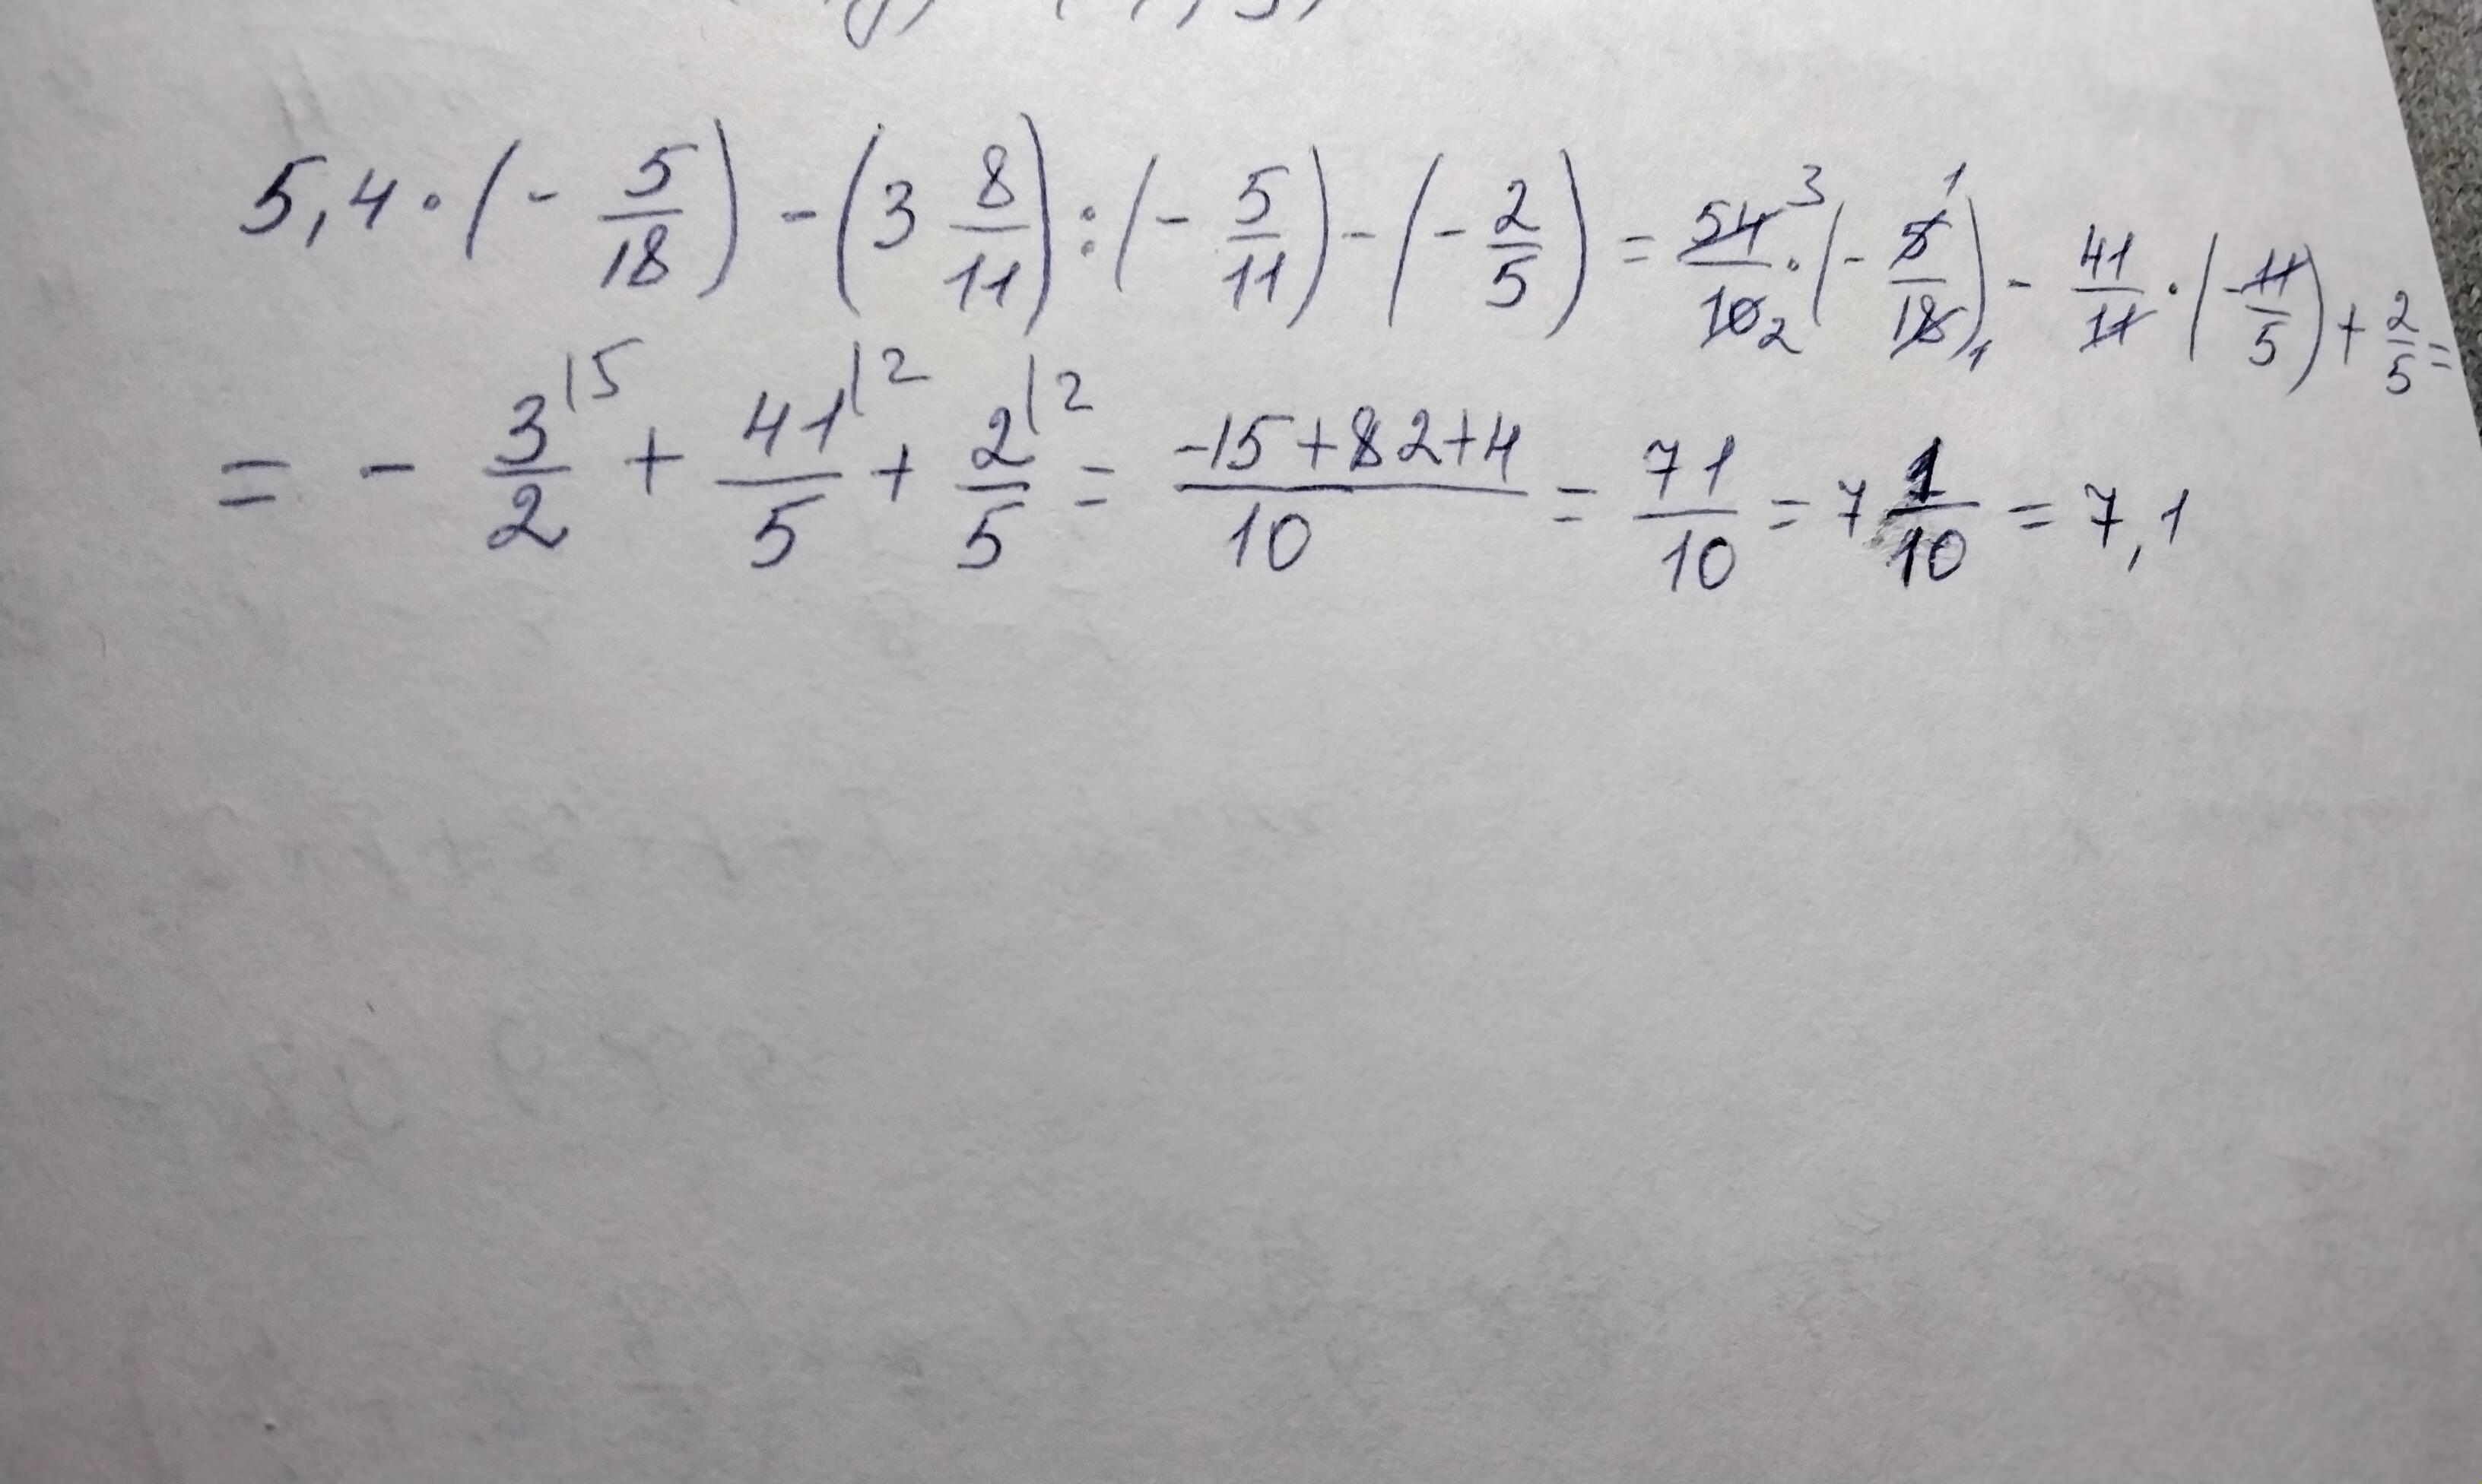 5,4 · (- 5/18) - (3 8/11) : (- 5/11) - (- 2/5) = 54³/10₂ · (- 5¹/18₁) - 41/11 · (- 11/5) + 2/5 =
= - 3|5/2 + 41|2/5 + 2|2/5 = -15+82+4/10 = 71/10 = 7 1/10 = 7,1